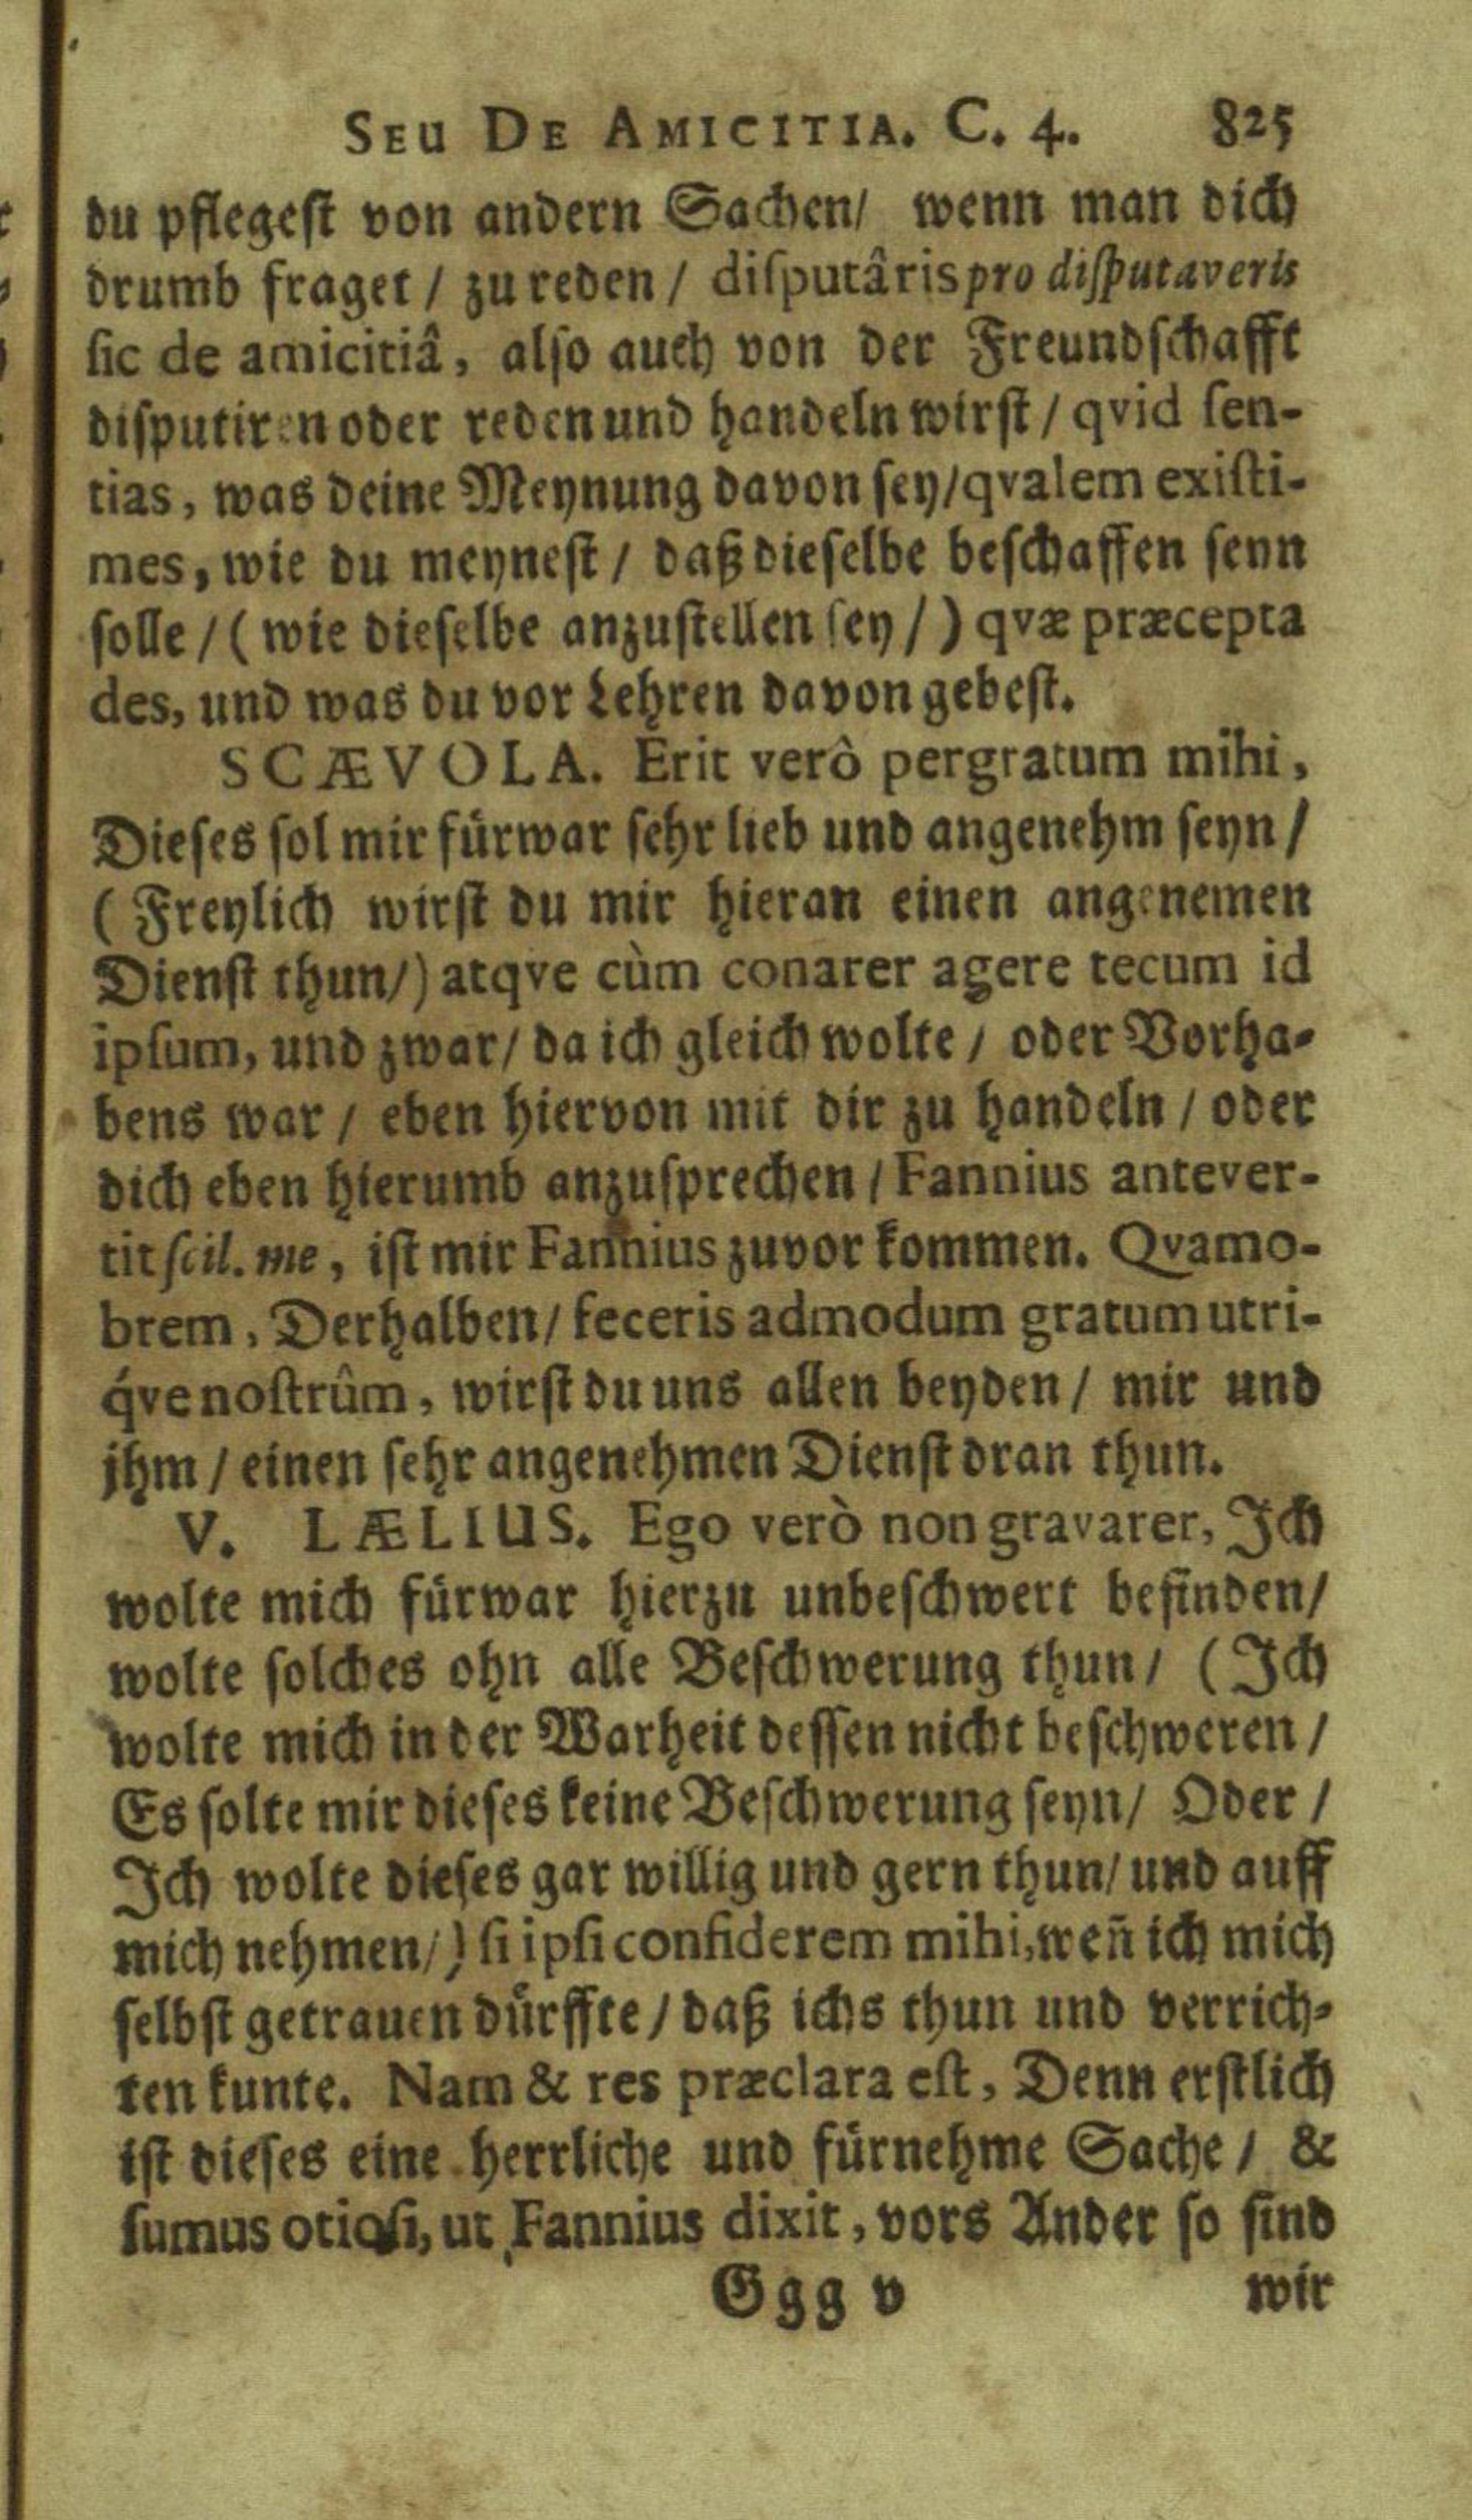 SEU DE AMICITIA. C. 4. 825
du pflegest von andern Sachen/ wenn man dich
drumb fraget / zu reden / disputâris pro disputaveris
sic de amicitiâ, also auch von der Freundschafft
disputiren oder reden und handeln wirst / qvid sen-
tias, was deine Meynung davon sey/ qvalem existi-
mes, wie du meynest / daß dieselbe beschaffen seyn
solle / ( wie dieselbe anzustellen sey / ) qvæ præcepta
des, und was du vor Lehren davon gebest.
SCÆVOLA. Erit verò pergratum mihi,
Dieses sol mir fürwar sehr lieb und angenehm seyn /
( Freylich wirst du mir hieran einen angenemen
Dienst thun/) atqve cùm conarer agere tecum id
ipsum, und zwar/ da ich gleich wolte / oder Vorha-
bens war / eben hiervon mit dir zu handeln / oder
dich eben hierumb anzusprechen / Fannius antever-
tit scil. me, ist mir Fannius zuvor kommen. Qvamo-
brem, Derhalben/ feceris admodum gratum utri-
q́ve nostrûm, wirst du uns allen beyden / mir und
jhm / einen sehr angenehmen Dienst dran thun.
V. LÆLIUS. Ego verò non gravarer, Jch
wolte mich fürwar hierzu unbeschwert befinden/
wolte solches ohn alle Beschwerung thun / (Jch
wolte mich in der Warheit dessen nicht beschweren /
Es solte mir dieses keine Beschwerung seyn/ Oder /
Jch wolte dieses gar willig und gern thun/ und auff
mich nehmen/) si ipsi confiderem mihi, weñ ich mich
selbst getrauen dürffte / daß ichs thun und verrich-
ten kunte. Nam & res præclara est, Denn erstlich
ist dieses eine herrliche und fürnehme Sache / &
sumus otiosi, ut Fannius dixit, vors Ander so sind
Ggg v wir